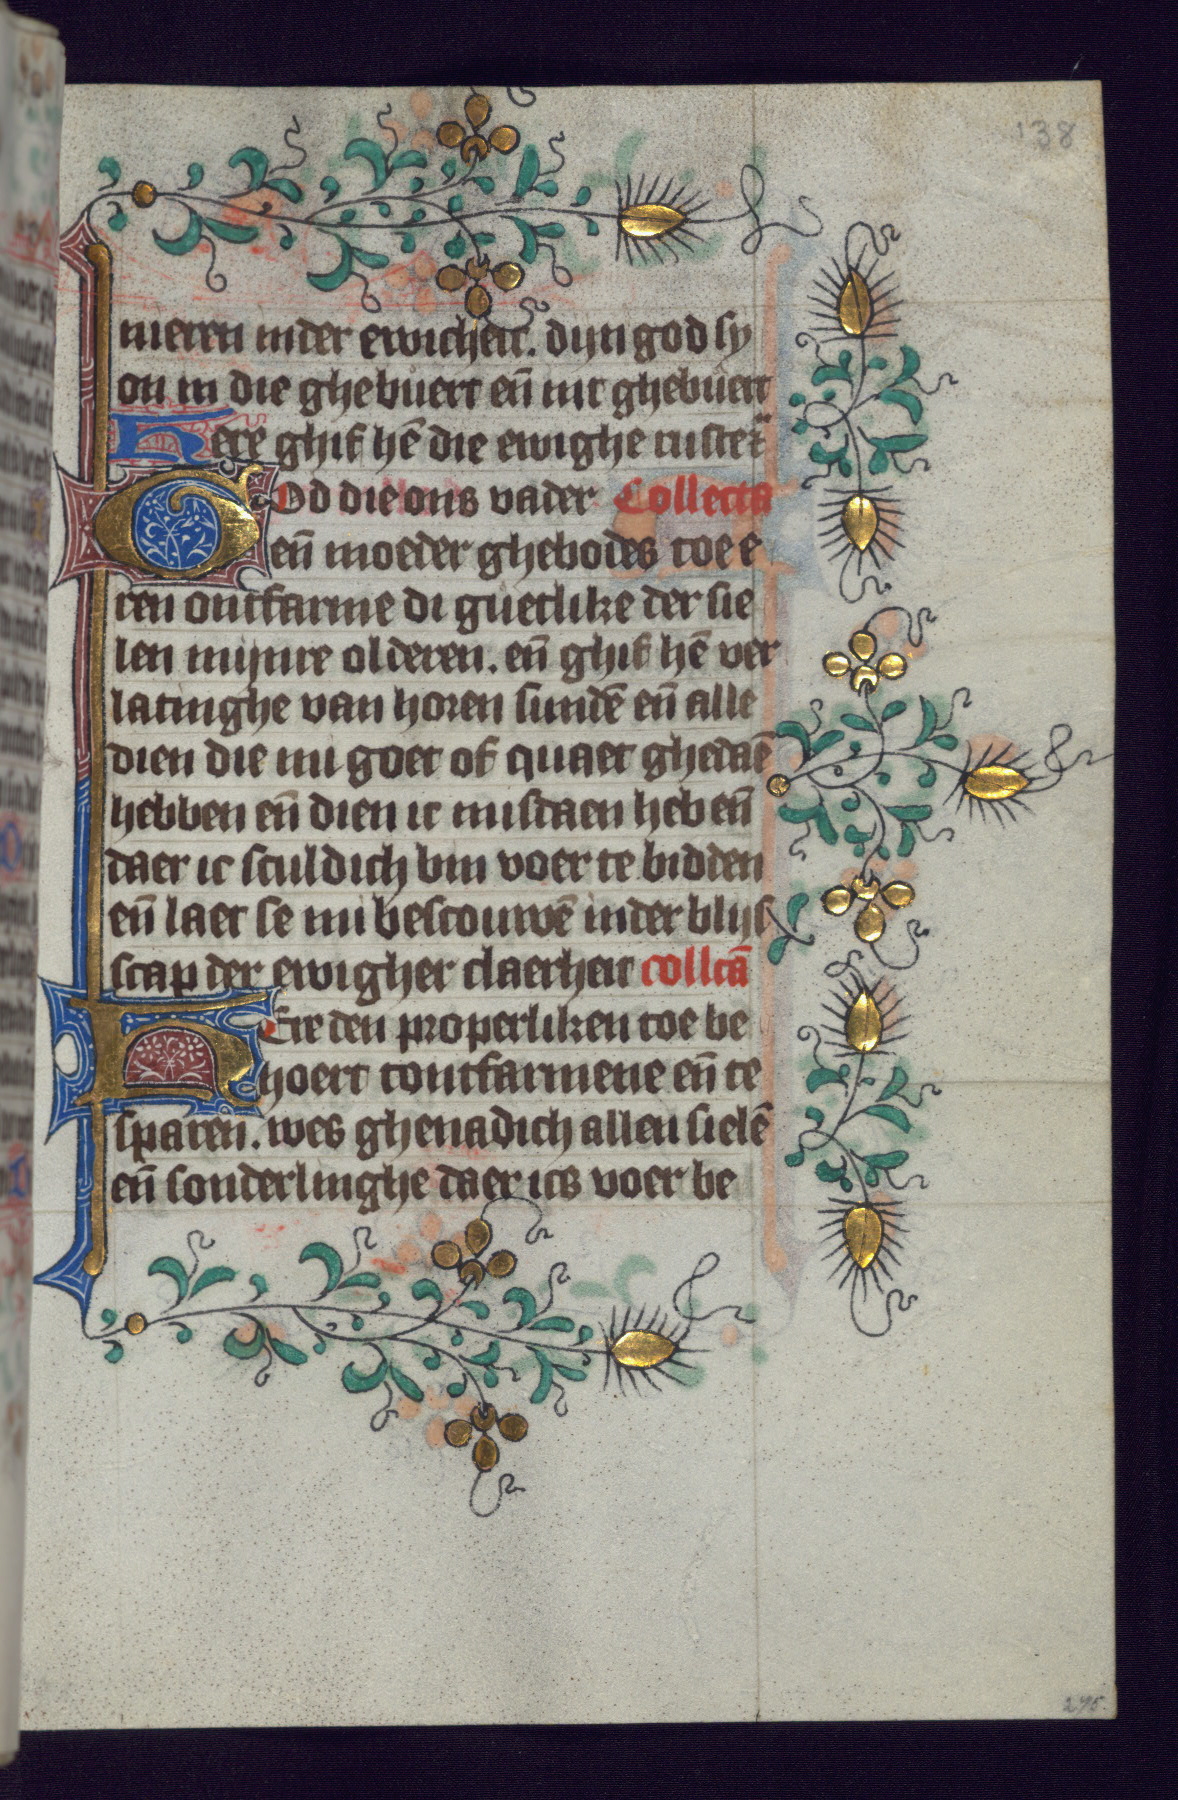 138
nieren inder ewicheit. dijn god sy
on in die ghebuert eñ int ghebuert
Here ghif hē die ewighe rustet̄
God die ons vader Collecta
eñ moeder ghebodes toe e
ren ontfarme di guetlike der sie
len mijnre olderen. eñ ghif hē ver
latinghe van horen sundē eñ alle
dien die mi goet of quaet ghedaē
hebben eñ dien ic misdaen heb eñ
daer ic sculdich bin voer te bidden
eñ laet se mi bescouwē inder blijs
scap der ewigher claerheit collcā
HEre den properliken toe be
hoert tontfarmene eñ te
sparen. wes ghenadich allen sielē
eñ sonderlinghe daer ics voer be
275